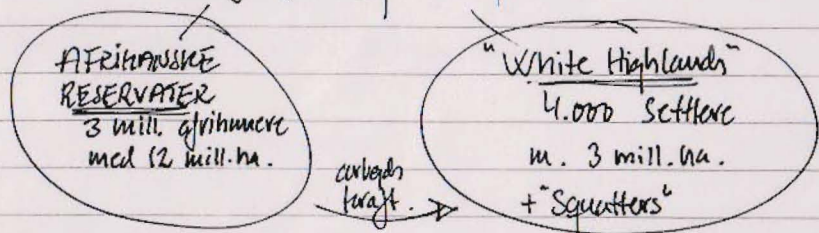 AFRIKANSKE
RESERVATER
3 mill. afrikanere
med 12 mill. ha.
arbejds
kraft.
"White Highlands"
4.000 Settlere
m. 3 mill. ha.
+ "Squatters"